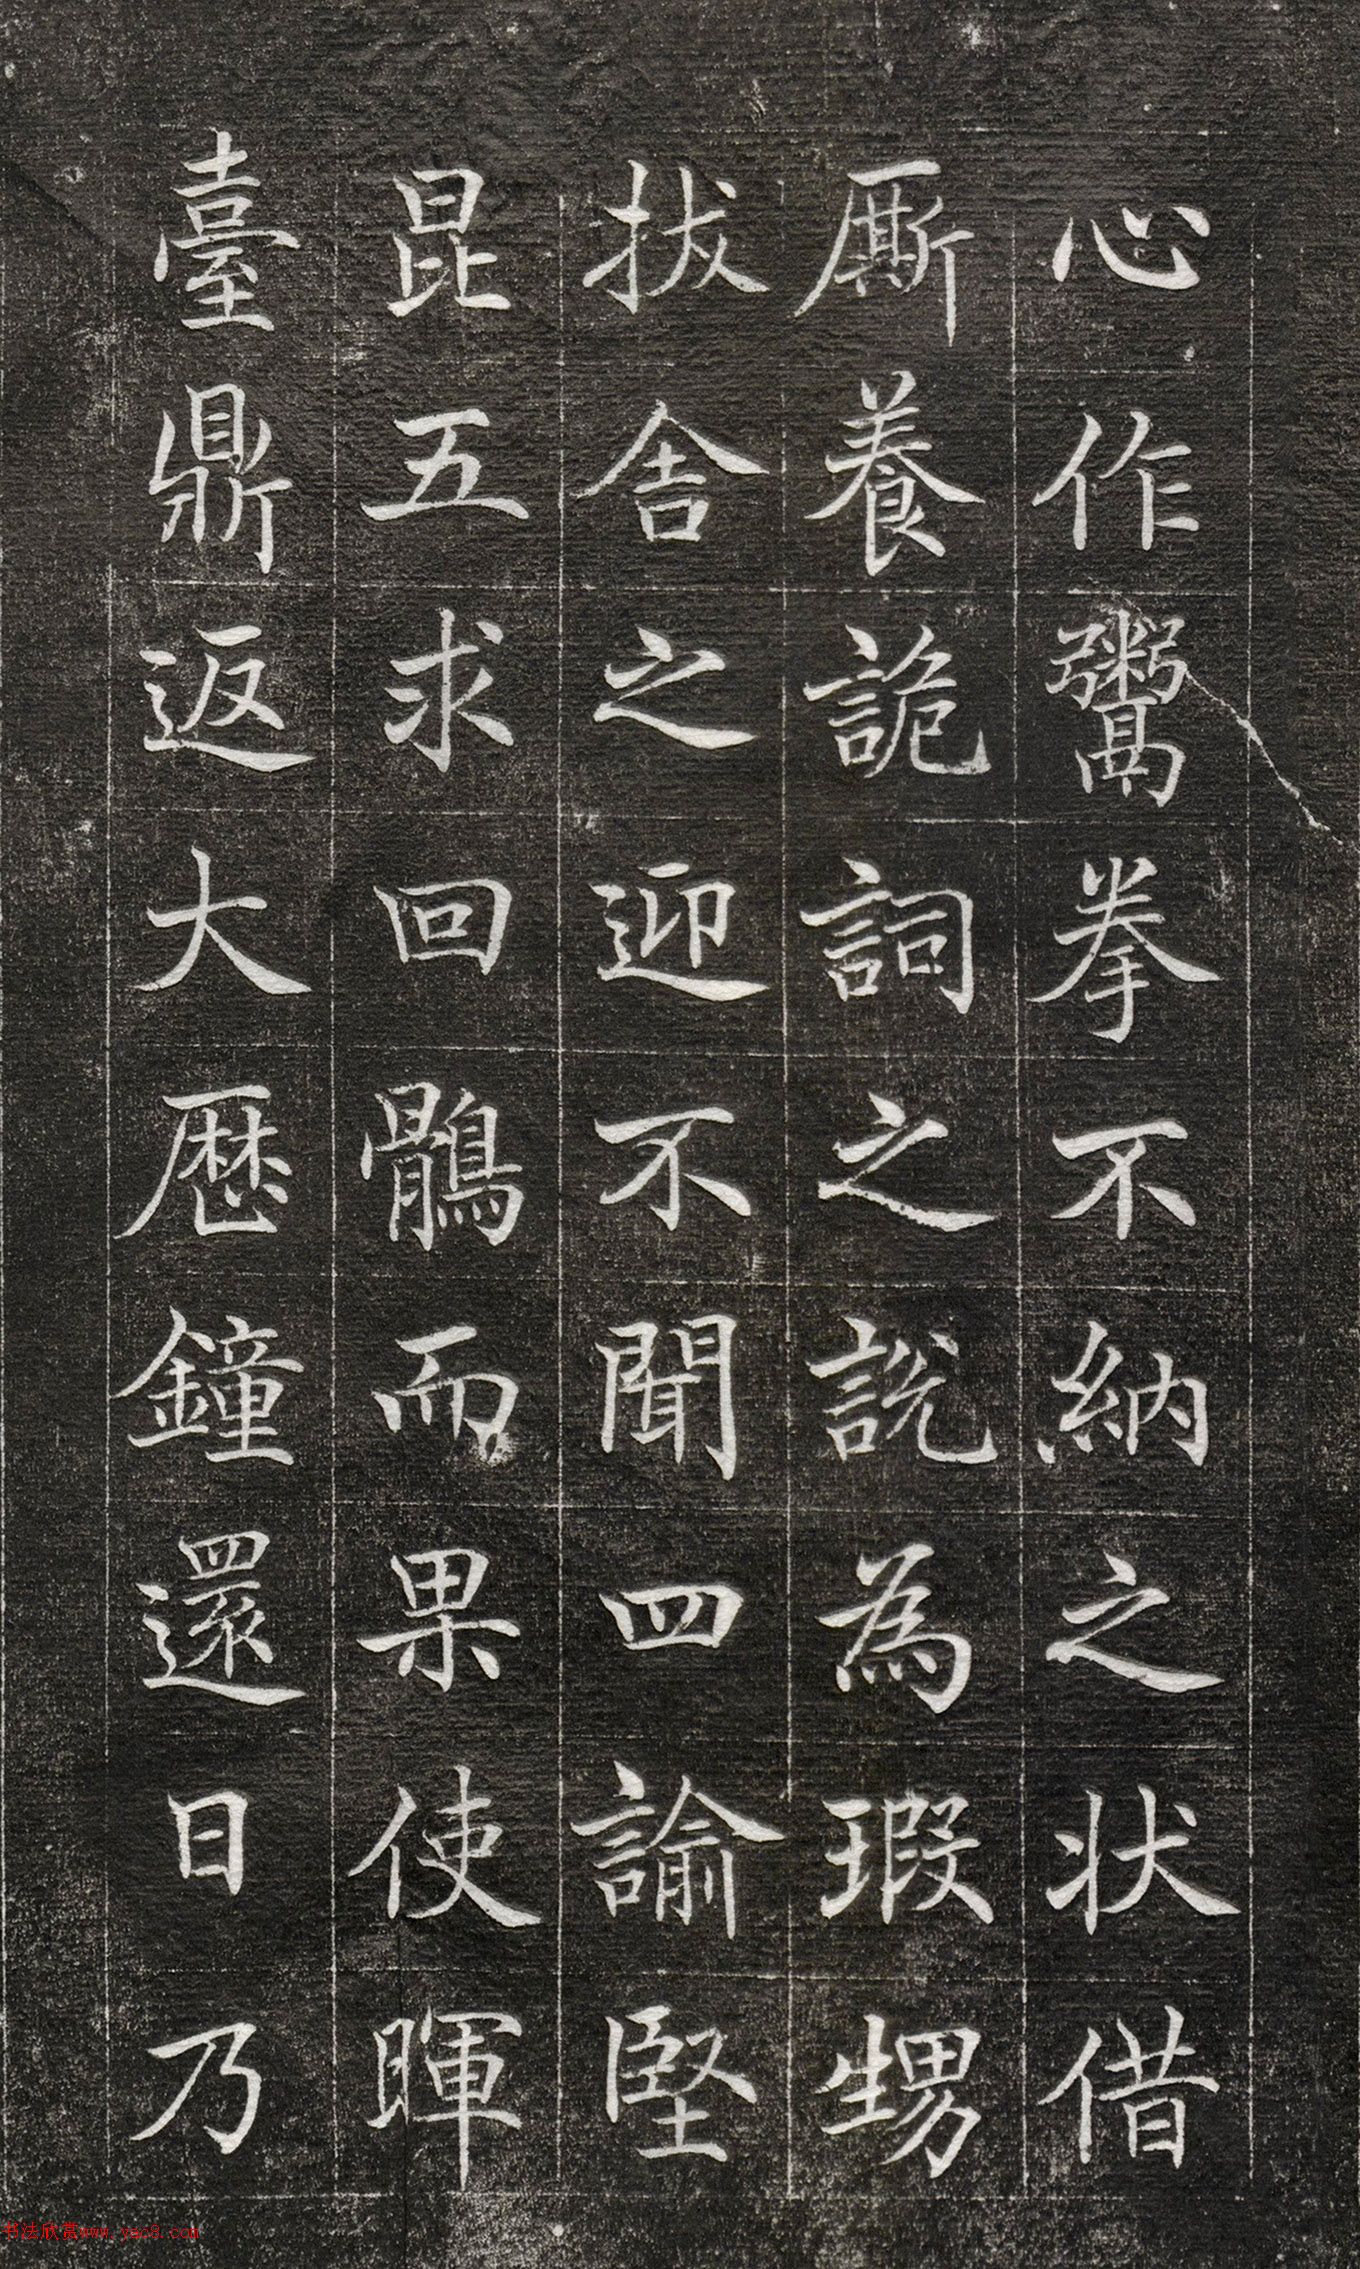 心作鬻拳不納之狀借
厮養詭詞之說為瑕甥
拔舍之迎不聞四諭堅
昆五求回鶻而果使暉
臺鼎返大厯鐘還日乃
书法欣赏www.yac8.com